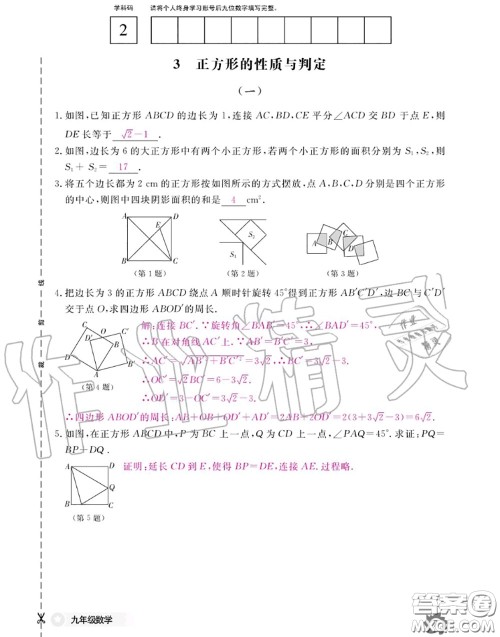 学科码 请将个人终身学习账号后九位数字填写完整。
2
3 正方形的性质与判定
(一)
1. 如图,已知正方形 ABCD 的边长为 1,连接 AC,BD,CE 平分∠ACD 交 BD 于点 E,则
DE 长等于 √2-1 .
2. 如图,边长为 6 的大正方形中有两个小正方形,若两个小正方形的面积分别为 S₁,S₂,则
S₁+S₂= 17 .
3. 将五个边长都为 2 cm 的正方形按如图所示的方式摆放,点 A,B,C,D 分别是四个正方形
的中心,则图中四块阴影面积的和是 4 cm².
A D E B C
S₁ S₂
A B C D
(第 1 题) (第 2 题) (第 3 题)
4. 把边长为 3 的正方形 ABCD 绕点 A 顺时针旋转 45°得到正方形 AB'C'D',边 BC 与 C'D'
交于点 O,求四边形 ABOD'的周长.
解:连接 BC'.∵旋转角∠BAB'=45°,∠BAD'=45°,
∴B 在对角线 AC'上.∵AB'=B'C'=3,
∴AC'=√(AB'²+B'C'²)=3√2.∴BC'=3√2-3.
∴OC'=√2BC'=6-3√2.
∴OD'=3-OC'=3√2-3.
∴四边形 ABOD'的周长:AB+OB+OD'+AD'=2AB+2OD'=2(3+3√2-3)=6√2.
(第 4 题)
5. 如图,在正方形 ABCD 中,P 为 BC 上一点,Q 为 CD 上一点,∠PAQ=45°.求证:PQ=
BP+DQ.
证明:延长 CD 到 E,使得 BP=DE,连接 AE.过程略.
A D Q B P C
(第 5 题)
线
剪
裁
作业精灵
九年级数学
答案圈
MXQE.COM